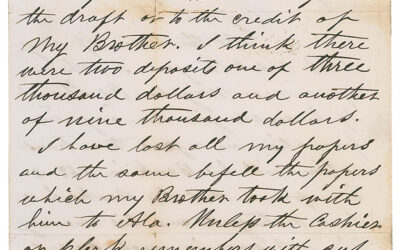 the draft or to the credit of
my Brother. I think there
were two deposits one of three
thousand dollars and another
of nine thousand dollars.
I have lost all my papers
and the same befell the papers
which my Brother took with
him to Ala. Unless the Cashier
or Clerk remembers with out